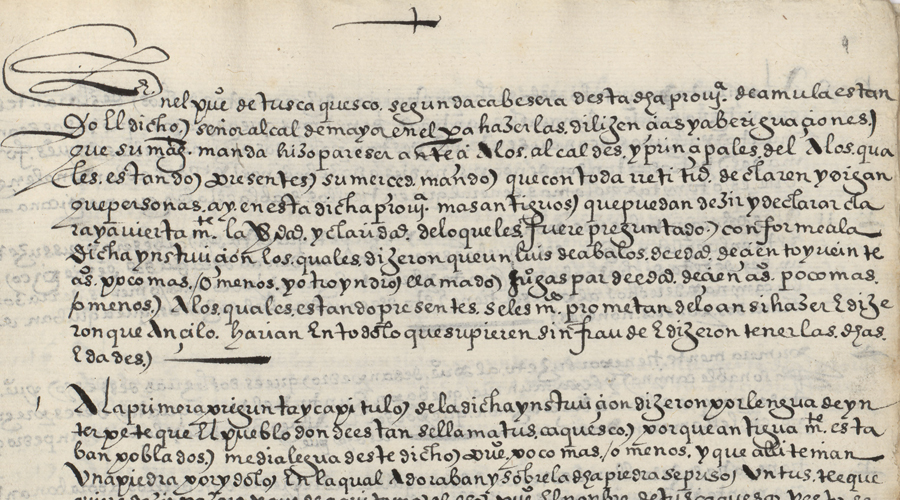 En el puº de tuscaquesco. segunda cabesera desta dha prouyª. de amula estan
do El dicho señor alcalde mayor en el pa hazer las diligençias y aberiguaçiones
que su magᵗ. manda hizo pareser ante ssi A los. alcaldes. y prinçipales del A los. qua
les. estando presentes su merced. mando que con toda rretitud. declaren y digan
que personas. ay. en esta dicha prouyª. mas antiguos que puedan dezir y declarar cla
ra y auierta mᵗᵉ. la Verdad. y claridad. de lo que les. fuere preguntado conforme a la
dicha ynstruiçion los. quales. dixeron que un luis de abalos. de edad. de çiento y veinte
aºs. poco mas. /o menos. y otro yndio llamado de edad. de çien aºs. poco mas.
/o menos A los. quales. estando presentes. se les mº. prometan de lo ansi hazer E dixe
ron que Ansi lo. harian En todo lo que supieren sin fraude E dixeron tener las. dhas.
Edades
A la primera pregunta y capitulo de la dicha ynstruiçion dixeron por lengua de yn
terpete que El pueblo donde estan se llama tuscaquesco. porque antigua mᵗᵉ. esta
ban poblados. media legua deste dicho puº. poco mas. /o menos. y que alli tenian
Vna piedra por ydolo En la qual Adoraban y sobre la dha piedra se puso Vn tusteque